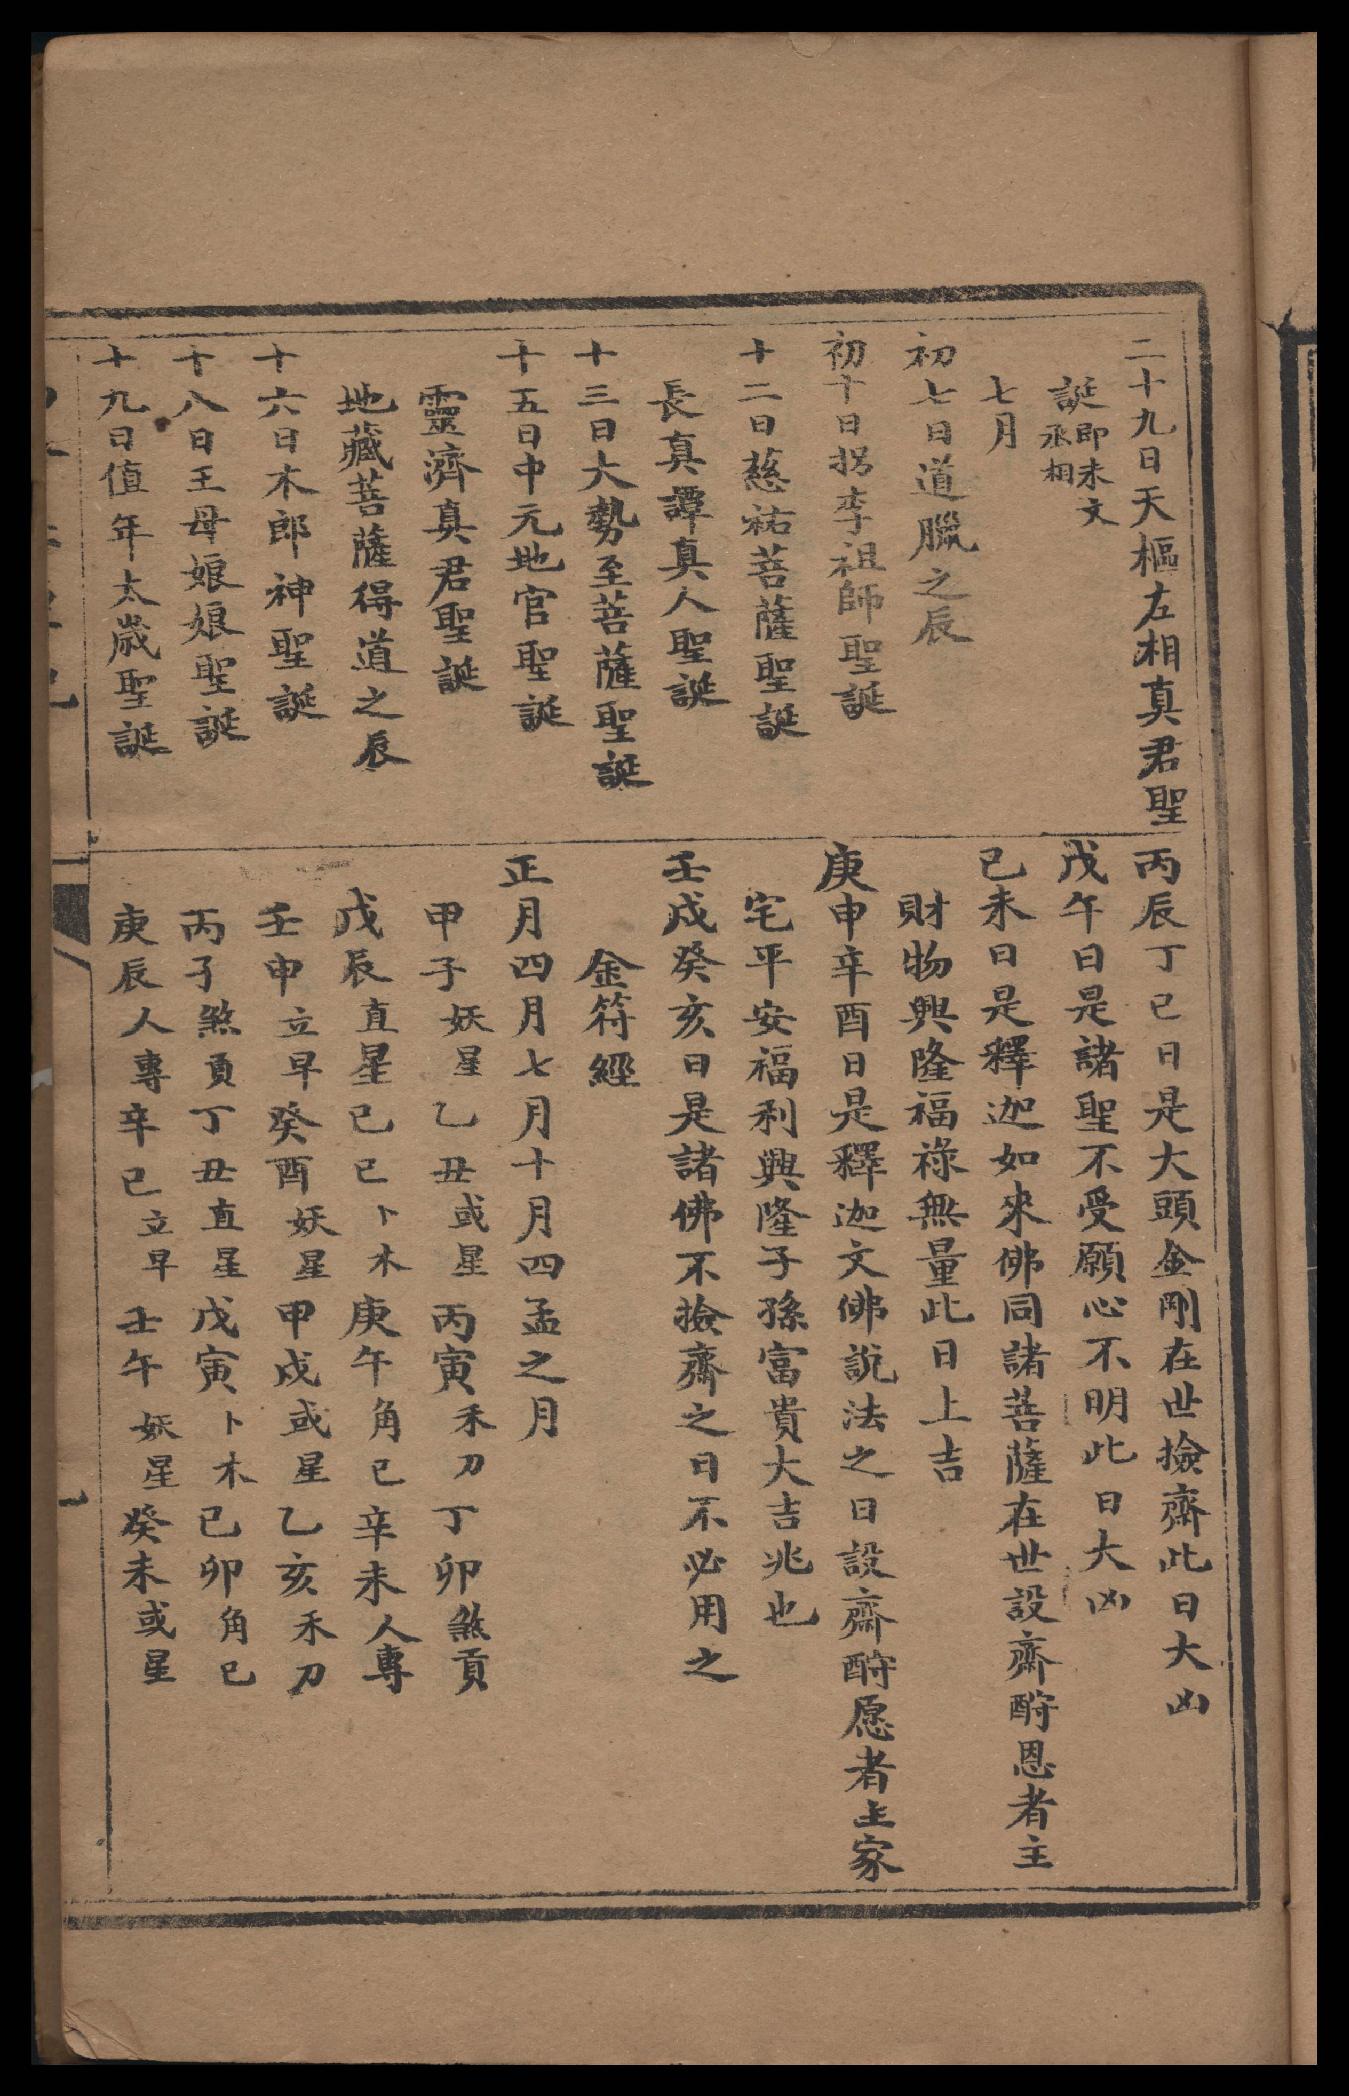 二十九日天樞左相真君聖
誕即未文
丞相
七月
初七日道臘之辰
初十日拐李祖師聖誕
十二日慈祐菩薩聖誕
長真譚真人聖誕
十三日大勢至菩薩聖誕
十五日中元地官聖誕
靈濟真君聖誕
地藏菩薩得道之辰
十六日木郎神聖誕
十八日王母娘娘聖誕
十九日值年太歲聖誕
丙辰丁巳日是大頭金剛在世撿齋此日大凶
戊午日是諸聖不受願心不明此日大凶
己未日是釋迦如來佛同諸菩薩在世設齋酧恩者主
財物興隆福祿無量此日上吉
庚申辛酉日是釋迦文佛說法之日設齋酧愿者主家
宅平安福利興隆子孫富貴大吉兆也
壬戌癸亥日是諸佛不撿齋之日不必用之
金符經
正月四月七月十月四孟之月
甲子妖星乙丑或星丙寅禾刀丁卯煞貢
戊辰直星己巳卜木庚午角己辛未人專
壬申立早癸酉妖星甲戌或星乙亥禾刀
丙子煞貢丁丑直星戊寅卜木己卯角己
庚辰人專辛巳立早壬午妖星癸未或星